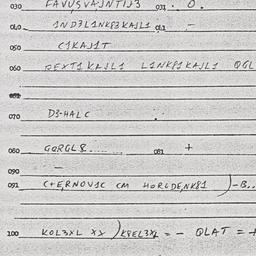 030 FAVUSVAJNTIJ3 031 . 0.
040 1ND3L1NK83KAJL1 041 -
050 C1KAJ1T
060 REXT1KAJL1 L1NK81KAJL1 QGL
070 D3-HALC .
080 GORGL8..... 081 +
090 -
091 C+ERNOV1C CM HORLDENK81 )-B..
100 KOL3XL XX )K8EL3XL = - QLAT = +